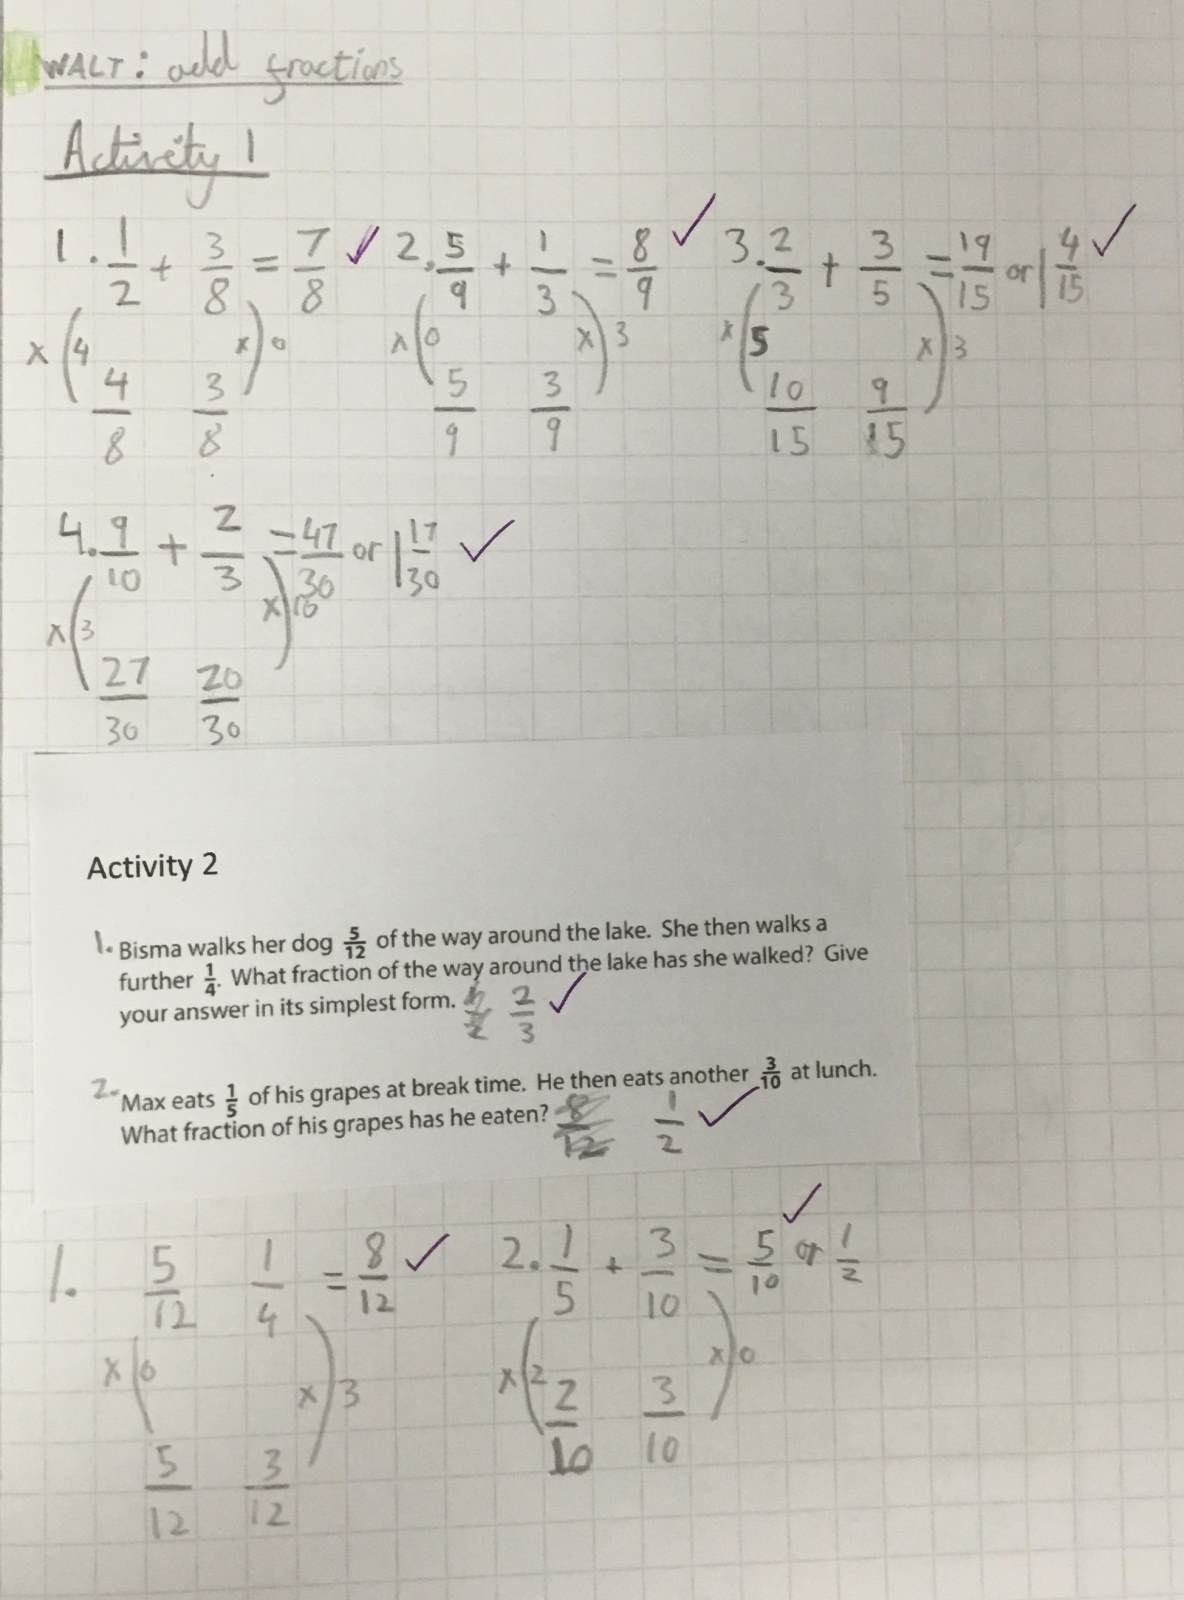 WALT: add fractions
Activity 1
1. 1/2 + 3/8 = 7/8 ✓ 2. 5/9 + 1/3 = 8/9 ✓ 3. 2/3 + 3/5 = 19/15 or 1 4/15 ✓
x ( 4 x ) 0 x ( 0 x ) 3 x ( 5 x ) 3
4/8 3/8 5/9 3/9 10/15 9/15
4. 9/10 + 2/3 = 47/30 or 1 17/30 ✓
x ( 3 x ) 10
27/30 20/30
Activity 2
1. Bisma walks her dog 5/12 of the way around the lake. She then walks a
further 1/4. What fraction of the way around the lake has she walked? Give
your answer in its simplest form. 2/3 ✓
2. Max eats 1/5 of his grapes at break time. He then eats another 3/10 at lunch.
What fraction of his grapes has he eaten? 8/12 1/2 ✓
1. 5/12 1/4 = 8/12 ✓ 2. 1/5 + 3/10 = 5/10 or 1/2 ✓
x ( 0 x ) 3 x ( 2 x ) 0
5/12 3/12 2/10 3/10